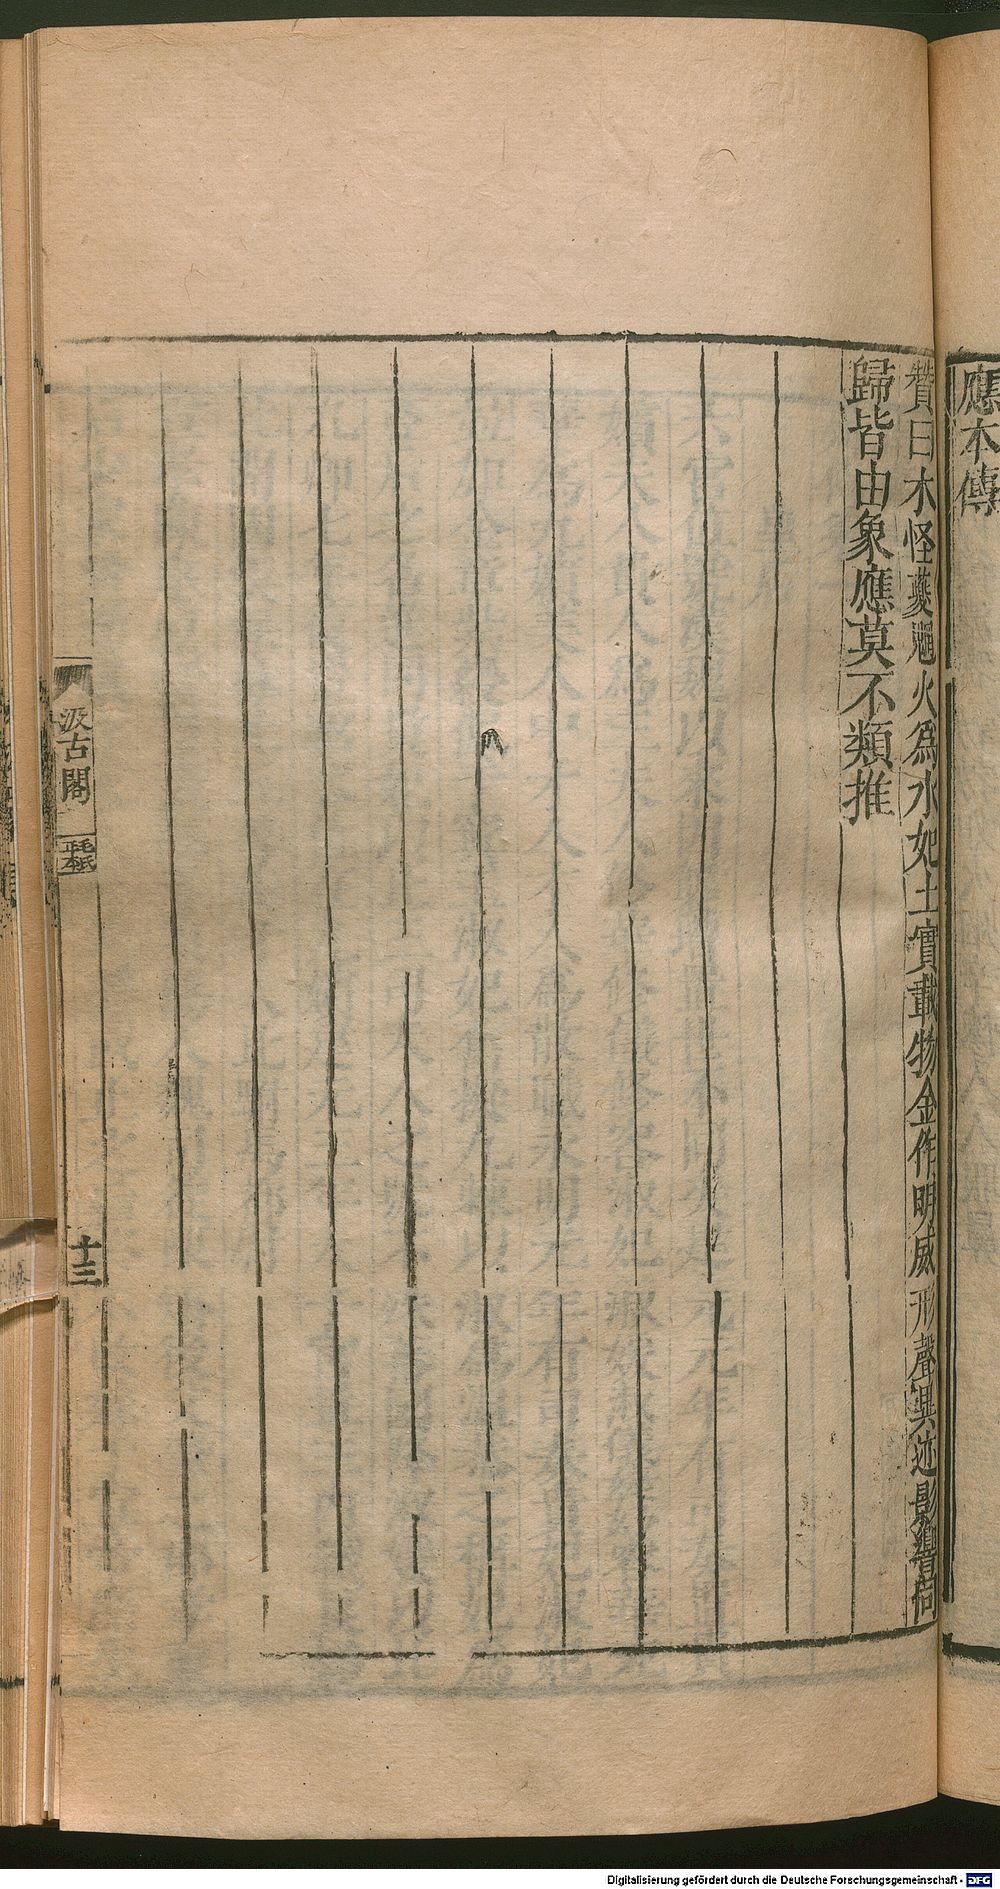 應本傳
贊曰木怪夔魍火爲水妃土實載物金作明威形聲異迹影響同
歸皆由象應莫不類推
汲古閣
毛氏
正本
十三
Digitalisierung gefördert durch die Deutsche Forschungsgemeinschaft - DFG